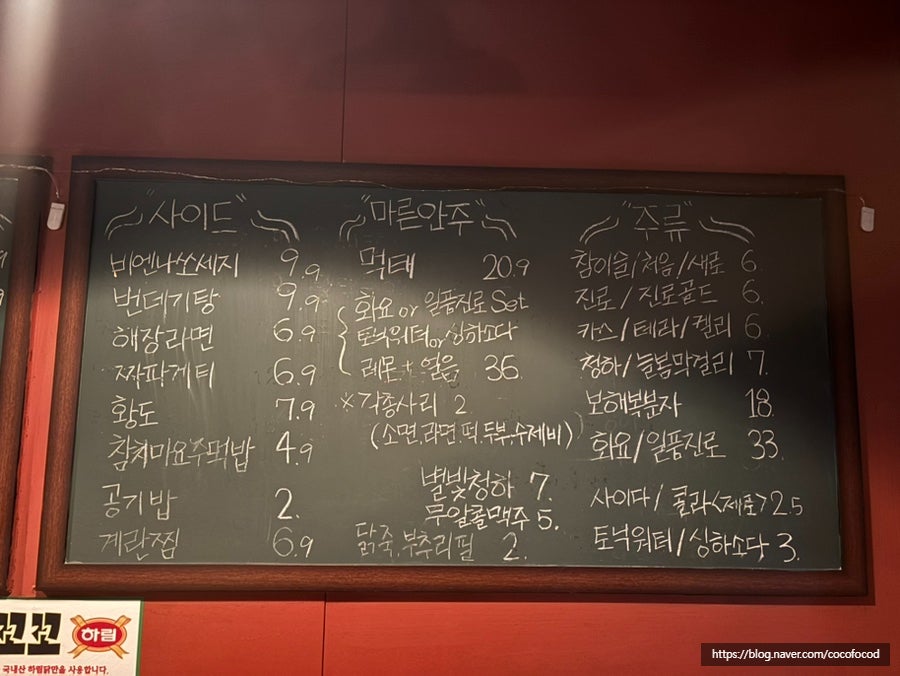 "사이드"
비엔나쏘세지 9.9
번데기탕 9.9
해장라면 6.9
짜파게티 6.9
황도 7.9
참치마요주먹밥 4.9
공기밥 2.
계란찜 6.9
"마른안주"
먹태 20.9
화요 or 일품진로 Set
토닉워터 or 싱하소다
레몬 + 얼음 36.
※ 각종사리 2
(소면.라면.떡.두부.수제비)
별빛청하 7.
무알콜맥주 5.
닭죽.부추리필 2.
"주류"
참이슬/처음/새로 6.
진로/진로골드 6.
카스/테라/켈리 6.
청하/늘봄막걸리 7.
보해복분자 18.
화요/일품진로 33.
사이다/콜라<제로> 2.5
토닉워터/싱하소다 3.
하림
국내산 하림닭만을 사용합니다.
https://blog.naver.com/cocofocod